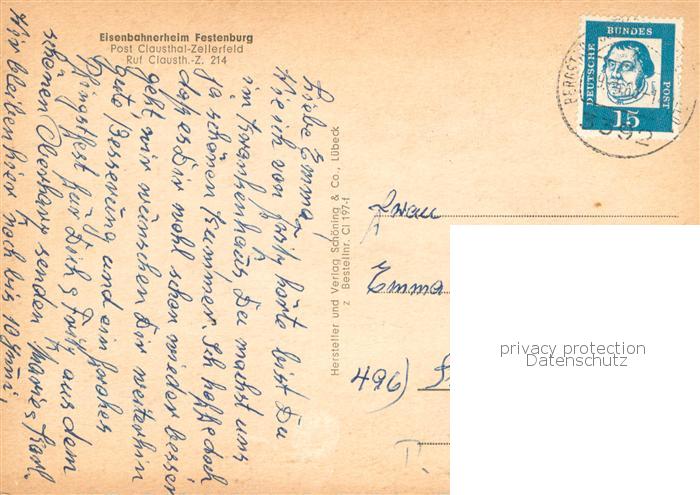 Eisenbahnerheim Festenburg
Post Clausthal-Zellerfeld
Ruf Clausth.-Z. 214
Liebe Emma,
Wie ich von Fritz hörte bist Du
im Krankenhaus, Du machst uns
ja schönen Kummer. Ich hoffe doch
daß es Dir wohl schon wieder besser
geht, wir wünschen Dir weiterhin
gute Besserung und ein frohes
Pfingstfest für Dich u. Fritz aus dem
schönen Oberharz senden Marie u. Karl.
Wir bleiben hier noch bis 10 Juni.
Hersteller und Verlag Schöning & Co., Lübeck
z Bestellnr. Cl 197-f
DEUTSCHE BUNDES POST
15
Frau
Emma
496)
privacy protection
Datenschutz